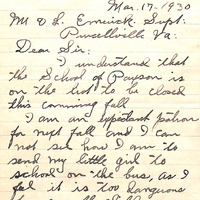 Mar. 17-1930
Mr O. L. Emerick. Supt:
Purcellville Va:
Dear Sir:
I understand that
the School of Paxson is
on the list to be closed
this comming fall
I am an expectant patron
for next fall and I can
not see how I am to
send my little girl to
school on the bus, as I
feel it is too dangerous